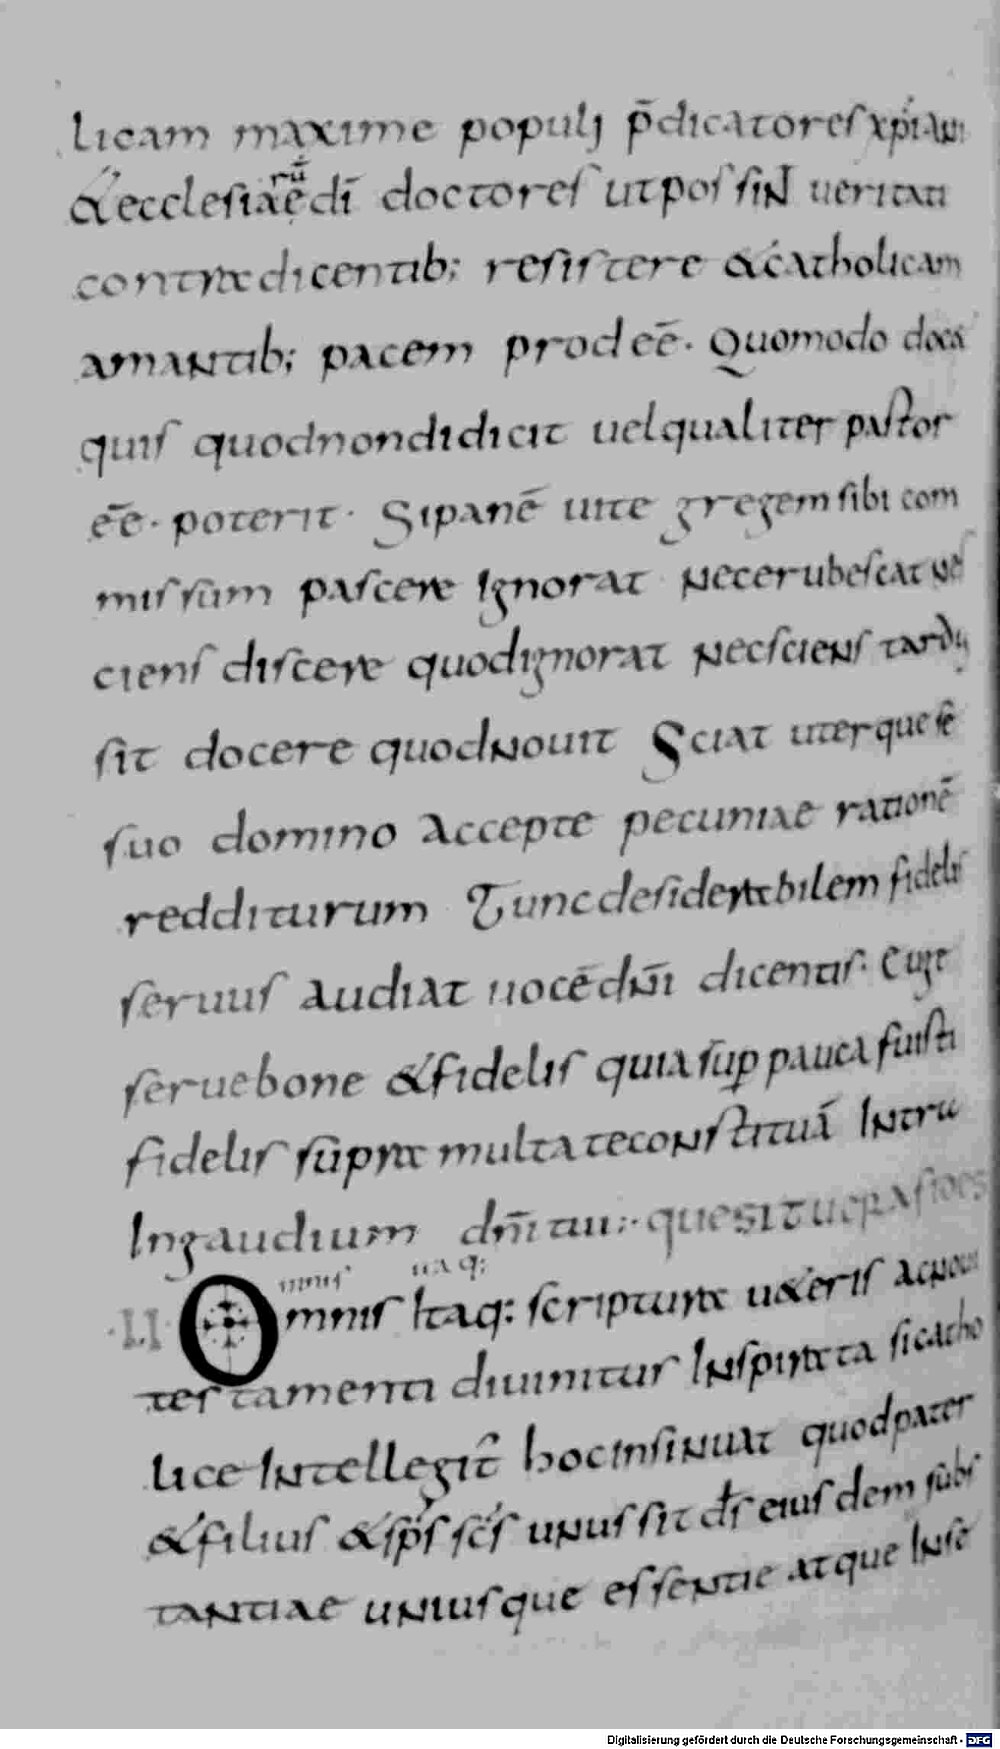 licam maxime populi p̄dicatores xpiani
& ecclesiarū ēdi doctores ut possiN ueritati
contradicentib; resistere & catholicam
amantib; pacem prodeē. Quomodo doc&
quis quod non didicit uel qualiter pastor
eē. poterit. Si panē uite gregem sibi com
missum pascere Ignorat nec erubescat nes
ciens discere quod ignorat nec sciens tardus
sit docere quod nouit Sciat uterque se
suo domino accepte pecuniae rationē
redditurum Tunc desiderabilem fidelis
seruus audiat uocē dn̄i dicentis. Euge
serue bone & fidelis quia sup pauca fuisti
fidelis supra multa te constituā Intra
In gaudium dn̄i tui:
omnis itaq;
II Omnis Itaq; scriptura ueteris ac noui
testamenti diuinitus Inspirata si catho
lice Intellegit̄ hoc insinuat quod pater
& filius & sp̄s sc̄s unus sit ds̄ eiusdem subs
tantiae uniusque essentie atque Inse